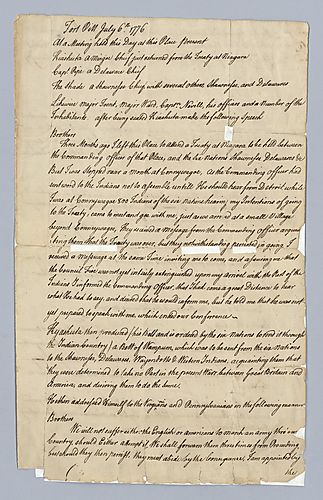 Fort Pitt July 6th 1776
At a Meeting held this Day at this Place present
Kiashuta a Mingoe Chief just returned from the Treaty at Niagara
Capt. Pipe a Delaware Chief
The Shade a Shawnesse Chief with several others Shawnesse, and Delawares
Likewise Major Trent, Major Ward, Captn. Nevill, his officers and a Number of the
Inhabitants after being seated Kiashuta made the following Speech
Brothers
Three Months ago I left this Place to attend a Treaty at Niagara to be held between
the Commanding officer of that Place, and the six Nations Shawnesse Delawares &c
But I was stopped near a Month at Connywagoe, as the Commanding officer had
sent word to the Indians not to assemble untill He should hear from Detroit, while
I was at Connywagoe 500 Indians of the six nations hearing my Intentions of going
to the Treaty, came to went along with me, just as we arrived at a small Village
beyond Connywagoe, They received a Message from the Commanding officer acquain
ting them that the Treaty was over, but they notwithstanding persisted in going, I
received a message at the same Time inviting me to come, and assuring me that
the Council Fire was not yet intirely extinguished upon my arrival with the Rest of the
Indians I informed the Commanding Officer that I had come a great Distance to hear
what He had to say, and desired that he would inform me, but he told me that he was not
yet prepared to speak with me, which ended our Conference
Kyashuta then produced (as he had and is ordered by the six Nations to send it through
the Indian Country) a Belt of Wampum, which was to be sent from the six Nations
to the Shawnesse, Delawares, Wayondotts & Western Indians, acquainting them that
they were determined to take no Part in the present War between Great Britain and
America, and desiring them to do the same
He then addressed Himself to the Virginians and Pennsylvanians in the following manner
Brothers
We will not suffer either the English or Americans to march an army thro' our
Country, should Either attempt it, We shall forewarn them three times from Proceeding
but should they then persist they must abide by the Consequence, I am appointed by
the